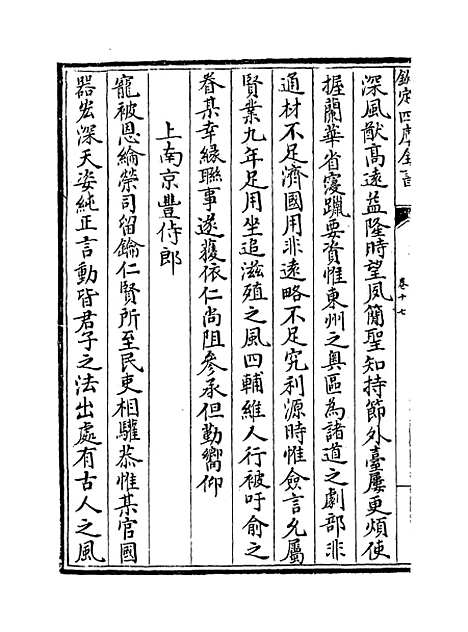 欽定四庫全書
卷十七
深風猷髙逺益隆時望夙簡聖知持節外臺屢更煩使
握蘭華省寖躐要資惟東州之奥區為諸道之劇部非
通材不足濟國用非逺略不足究利源時惟僉言允屬
賢業九年足用坐追滋殖之風四輔維人行被吁俞之
眷某幸縁聯事遂獲依仁尚阻參承但勤嚮仰
上南京豐侍郎
寵被恩綸榮司留鑰仁賢所至民吏相驩恭惟某官國
器宏深天姿純正言動皆君子之法出處有古人之風